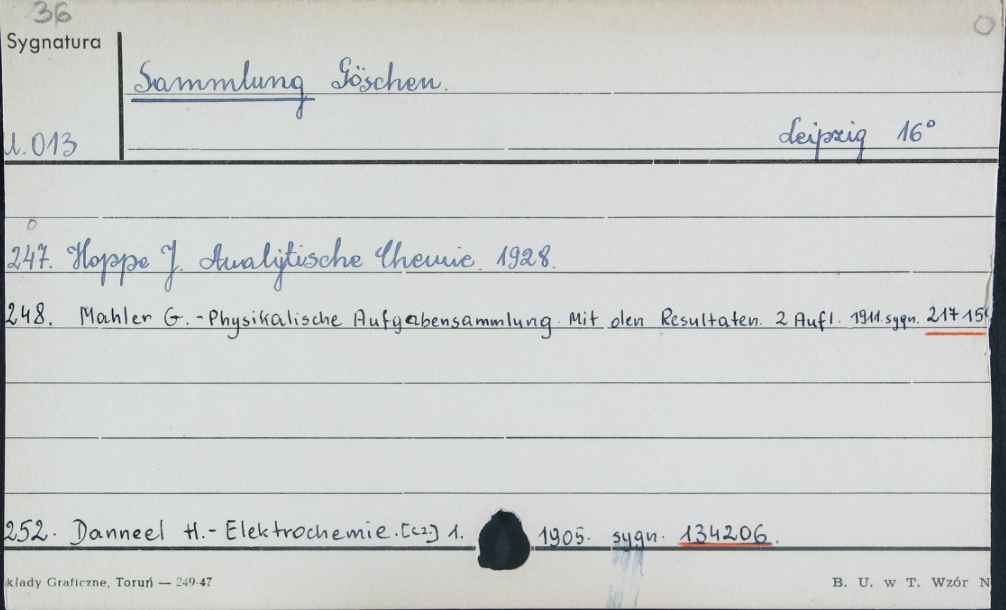 36
Sygnatura
Sammlung Göschen.
U. 013
Leipzig 16°
247. Hoppe J. Analytische Chemie. 1928.
248. Mahler G. - Physikalische Aufgabensammlung. Mit den Resultaten. 2 Aufl. 1911. sygn. 21715
252. Danneel H. - Elektrochemie. [cz.] 1. 1905. sygn. 134206.
kłady Graficzne, Toruń — 249-47
B. U. w T. Wzór N